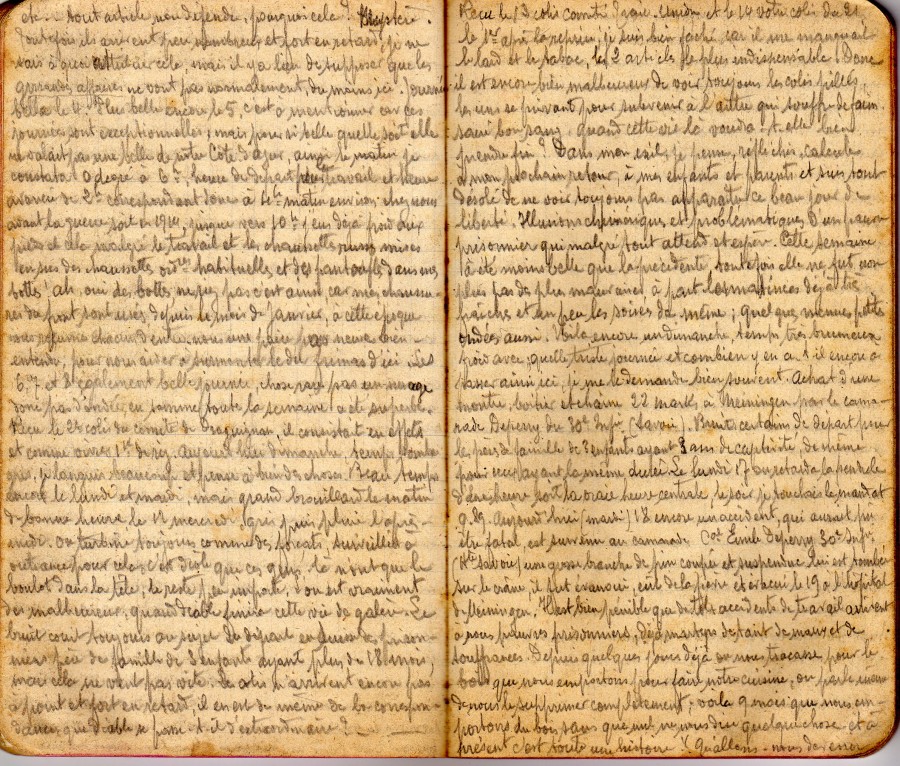 et tout article non défendu, pourquoi cela? Mystère.
Toutefois ils arrivent peu nombreux et fort en retard, je ne
sais à quoi attribuer cela, mais il y a lieu de supposer que les
grandes affaires ne vont pas normalement, du moins ici. Journée
belle le 4. Plus belle encore le 5, c'est à mentionner car ces
journées sont exceptionnelles; mais pour si belle quelle soit elle
ne valait pas une belle de notre Côte d'Azur, ainsi le matin je
constatai 0 degré à 6 h, heure du départ travail et heure
avancée de 2 h correspondant donc à 4 h matin environ chez nous
avant la guerre soit en 1914, jusque vers 10 h j'eus déjà froid aux
pieds et cela malgré le travail et les chaussettes russes mises
en sus des chaussettes habituelles et des pantoufles dans mes
bottes! ah, oui des bottes, ne pas c'est ainsi car mes chaussu-
res du front sont usées depuis le mois de janvier, à cette époque
chacun d'entre nous une paire pas neuve bien
entendu, pour nous aider à surmonter le dur frimas d'ici. Les
6, 7 et 8 également belle journée, chose rare pas un nuage
donc pas d'ondée, en somme toute la semaine a été superbe.
Reçu le 2e colis du comité de Draguignan, il consistait en effets
et comme vivres 1 k de riz. Aujourd'hui dimanche, temps sombre
gris, je languis beaucoup et pense à bien des choses. Beau temps
encore le lundi et mardi, mais grand brouillard le matin
de bonne heure le 12 mercredi gris puis pluie l'après-
midi. On turbine toujours comme des forçats, surveillés à
outrance pour cela, c'est drôle qui ces gens là n'ont que le
boulot dans la tête, le reste peu importe, non est vraiment
des malheureux, quand diable finira cette vie de galère. Le
bruit court toujours au sujet du départ en Suisse des prison-
niers père de famille de 3 enfants ayant plus de 18 mois,
mais cela ne vient pas vite. Les colis n'arrivent encore pas
à point et fort en retard, il en est de même de la correspon-
dance, que diable se passe-t-il d'extraordinaire?
Reçu le 13 colis comité Union et le 14 votre colis du 21
le 1er après la reprise, je suis bien fâché car il me manquait
le lard et le tabac, les 2 articles le plus indispensable! Donc
il est encore bien malheureux de voir toujours les colis pillés
les uns se privant pour subvenir à l'autre qui souffre de faim.
sacré bon sang, quand cette vie là voudra-t-elle bien
prendre fin? Dans mon exil, je pense, réfléchis, calcule
à mon prochain retour, à mes enfants et parents et suis tout
désolé de ne voir toujours pas apparaître ce beau jour de
liberté. Illusions chimériques et problématiques d'un pauvre
prisonnier qui malgré tout attend et espère. Cette semaine
a été moins belle que la précédente, toutefois elle ne fut non
plus pas des plus mauvaises, à part les matinées déjà très
fraîches et un peu les soirées de même; quelques menues petits
ondées aussi. Voilà encore un dimanche, temps très brumeux
froid avec; quelle triste journée et combien y en a-t-il encore à
passer ainsi ici, je me le demande bien souvent. Achat d'une
montre, boîtier et chaîne 22 marks à Meiningen par le cama-
rade Deperry du 30e Infrie (Savoie). Bruit certains de départ pour
les pères de famille de 3 enfants ayant 3 ans de captivité, de même
pour ceux ayant la même durée. Le lundi 17 on retarda la pendule
d'une heure soit la vraie heure centrale, le soir je touchais le mandat
9.89. Aujourd'hui (mardi) 18 encore un accident, qui aurait pu
être fatal, est survenu au camarade Cal Emile Deperry 30e Infie
Hte Savoie, une grosse branche de pin coupée et suspendue lui est tombée
sur le crâne, il fut évanoui, eut de la fièvre et évacué le 19 à l'hôpital
de Meiningen. Il est bien pénible que de tels accidents de travail arrivent
à nous pauvres prisonniers, déjà martyrs de tant de maux et de
souffrances. Depuis quelques jours déjà on nous tracasse pour le
bois que nous emportons pour faire notre cuisine, on parle même
de nous le supprimer complètement; voilà 9 mois que nous em-
portons du bois sans que nul ne nous dise quelque chose et à
présent c'est toute une histoire!! Qu'allons-nous devenir